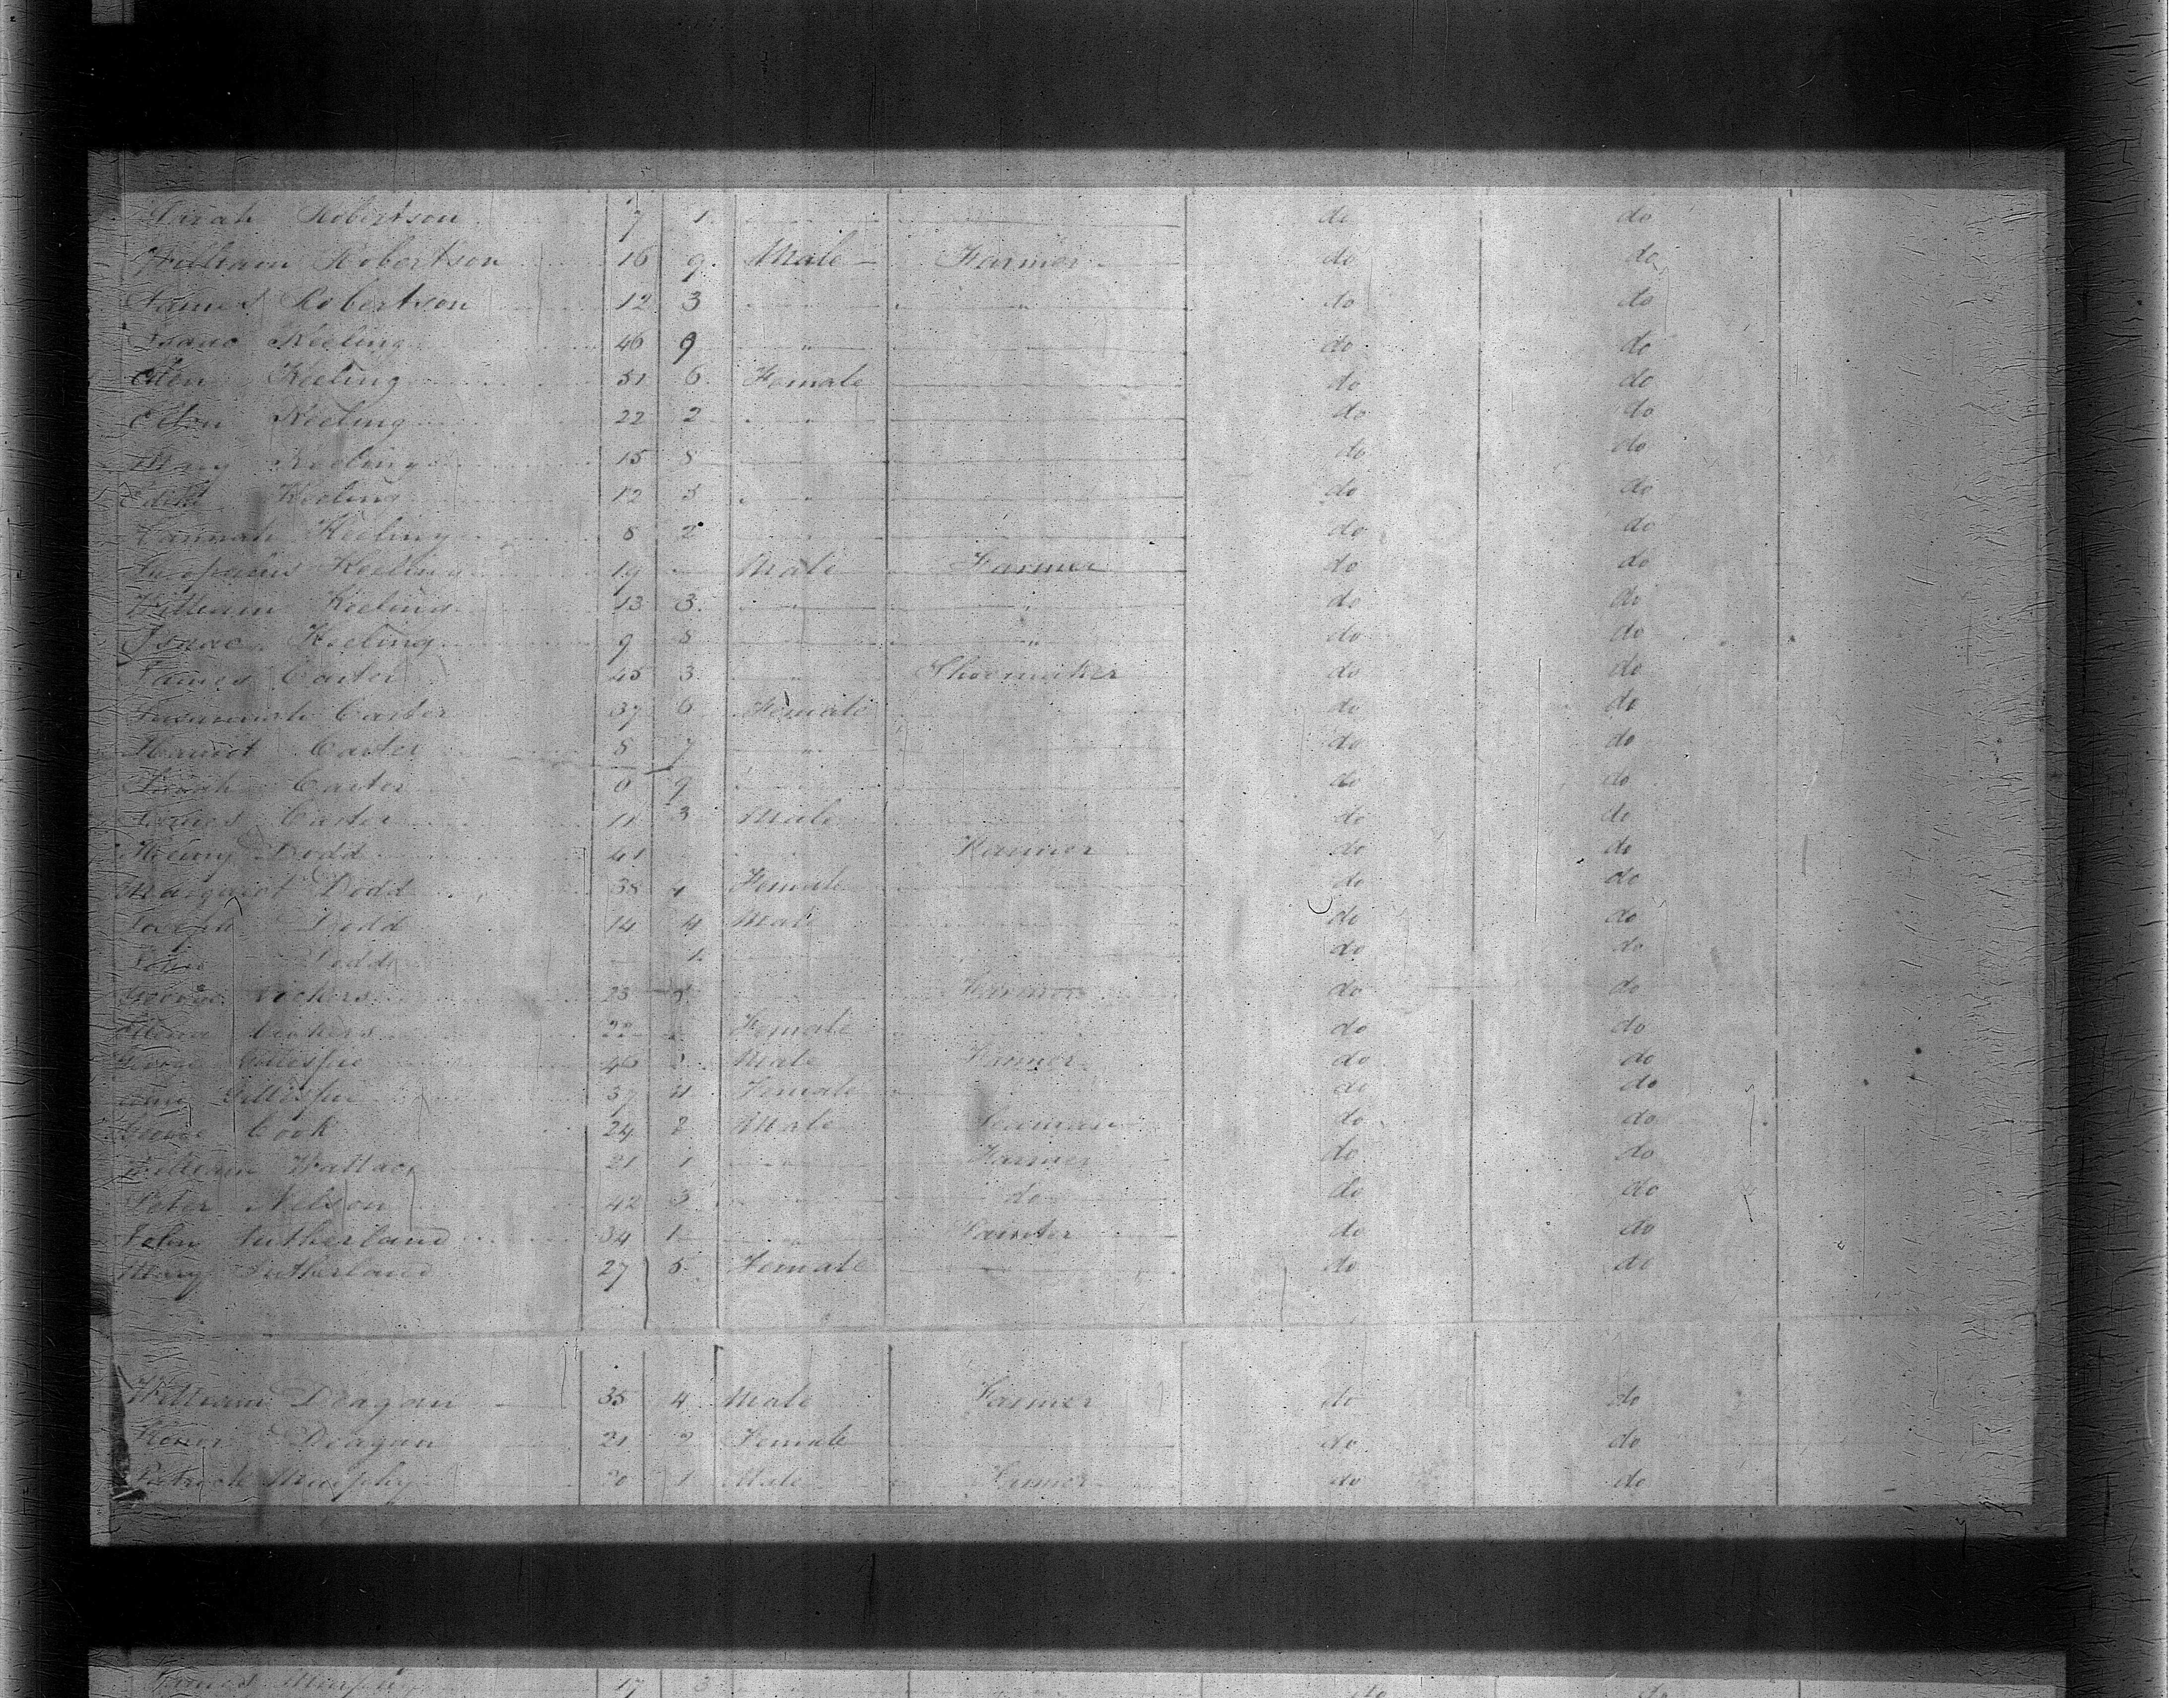 Sarah Robertson 7 1 do do
William Robertson 16 9 Male Farmer do do
James Robertson 12 3 " " do do
Isaac Keeling 46 9 " do do
Ellen Keeling 51 6 Female do do
Ellen Keeling 22 2 " do do
Mary Keeling 15 8 do do
Edith Keeling 12 3 " do do
Hannah Keeling 8 2 do do
Keeling 19 Male Farmer do do
William Keeling 13 3 " " do do
Isaac Keeling 9 8 " do do
James Carter 45 3 " Shoemaker do do
Susannah Carter 37 6 Female do do
Harriot Carter 5 7 " do do
Sarah Carter 0 9 do do
James Carter 11 3 Male do do
Henry Dodd 41 Farmer do do
Margaret Dodd 38 Female do do
Joseph Dodd 14 4 Male do do
Dodd 1 do do
George Vickers 23 Farmer do do
Vickers 22 Female do do
George Gillespie 46 Male Farmer do do
Gillespie 37 Female do do
George Cook 24 2 Male Seaman do do
William Wallace 21 1 Farmer do do
Peter Nelson 42 3 do do do
John Sutherland 34 1 " Painter do do
Mary Sutherland 27 5 Female do do
William Deagan 35 4 Male Farmer do do
Deagan 21 2 Female do do
Patrick Murphy 20 1 Male Farmer do do
James Murphy 17 3 do do